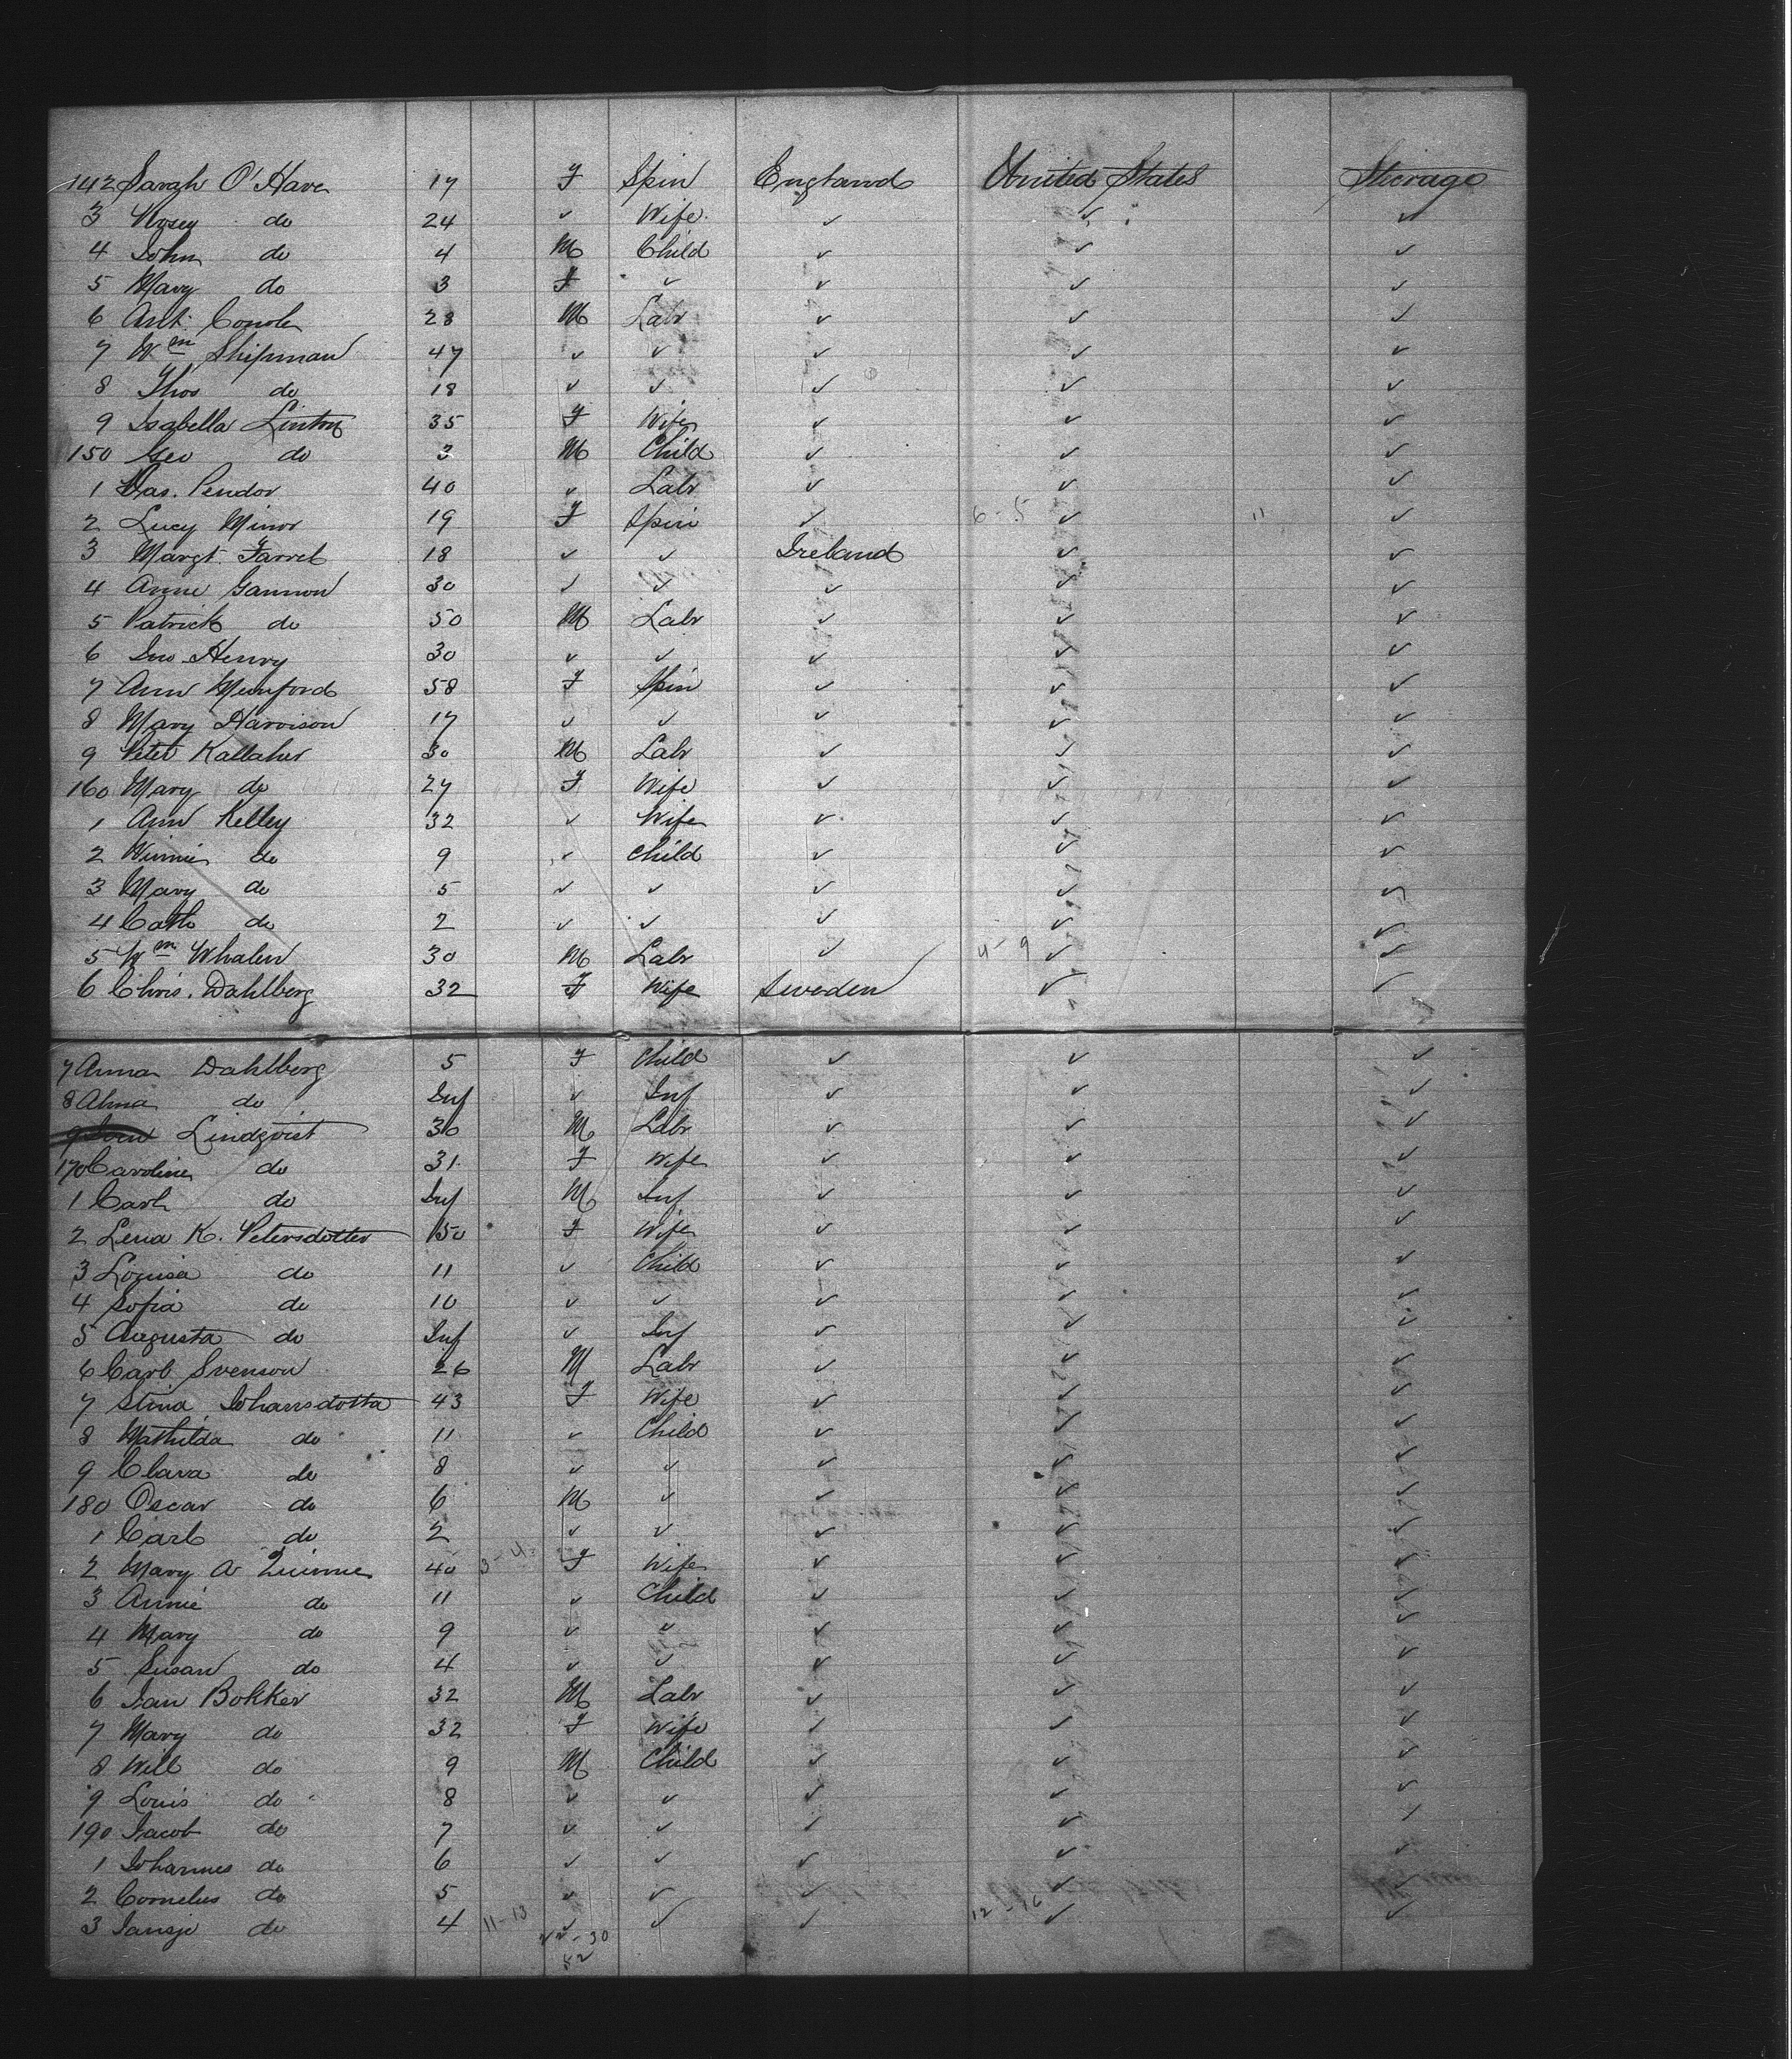 142 Sarah O'Hare 17 F Spin England United States Steerage
3 Rosey do 24 ✓ Wife ✓ ✓ ✓
4 John do 4 M Child ✓ ✓ ✓
5 Mary do 3 F ✓ ✓ ✓ ✓
6 Ant. 28 M Labr ✓ ✓ ✓
7 Wm Shipman 47 ✓ ✓ ✓ ✓ ✓
8 Thos do 18 ✓ ✓ ✓ ✓ ✓
9 Isabella Linton 35 F Wife ✓ ✓ ✓
150 Geo do 3 M Child ✓ ✓ ✓
1 Pendor 40 ✓ Labr ✓ ✓ ✓
2 Lucy Minor 19 F Spin ✓ 6-5 ✓ 11 ✓
3 Margt. Farrel 18 ✓ ✓ Ireland ✓ ✓
4 Anne Gannon 30 ✓ ✓ ✓ ✓ ✓
5 Patrick do 50 M Labr ✓ ✓ ✓
6 Jno Henry 30 ✓ ✓ ✓ ✓ ✓
7 Ann Munford 58 F Spin ✓ ✓ ✓
8 Mary Harrison 17 ✓ ✓ ✓ ✓ ✓
9 Peter Kallaher 30 M Labr ✓ ✓ ✓
160 Mary do 27 F Wife ✓ ✓ ✓
1 Ann Kelley 32 ✓ Wife ✓ ✓ ✓
2 Winnie do 9 ✓ Child ✓ ✓ ✓
3 Mary do 5 ✓ ✓ ✓ ✓ ✓
4 Cath do 2 ✓ ✓ ✓ ✓ ✓
5 Wm Whalen 30 M Labr ✓ 4-9 ✓ ✓
6 Chris. Dahlberg 32 F Wife Sweden ✓ ✓
7 Anna Dahlberg 5 F Child ✓ ✓ ✓
8 Alma do Inf ✓ Inf ✓ ✓ ✓
9 Lindqvist 30 M Labr ✓ ✓ ✓
170 Caroline do 31 F Wife ✓ ✓ ✓
1 Carl do Inf M Inf ✓ ✓ ✓
2 Lena K. Petersdotter 50 F Wife ✓ ✓ ✓
3 Louisa do 11 ✓ Child ✓ ✓ ✓
4 Sofia do 10 ✓ ✓ ✓ ✓ ✓
5 Augusta do Inf ✓ Inf ✓ ✓ ✓
6 Carl Svenson 26 M Labr ✓ ✓ ✓
7 Stina Johansdotta 43 F Wife ✓ ✓ ✓
8 Mathilda do 11 ✓ Child ✓ ✓ ✓
9 Clara do 8 ✓ ✓ ✓ ✓ ✓
180 Oscar do 6 M ✓ ✓ ✓ ✓
1 Carl do 2 ✓ ✓ ✓ ✓ ✓
2 Mary A 40 3-4 F Wife ✓ ✓ ✓
3 Annie do 11 ✓ Child ✓ ✓ ✓
4 Mary do 9 ✓ ✓ ✓ ✓ ✓
5 Susan do 4 ✓ ✓ ✓ ✓ ✓
6 Jan Bokker 32 M Labr ✓ ✓ ✓
7 Mary do 32 F Wife ✓ ✓ ✓
8 Will do 9 M Child ✓ ✓ ✓
9 Louis do 8 ✓ ✓ ✓ ✓ ✓
190 Jacob do 7 ✓ ✓ ✓ ✓ ✓
1 Johannes do 6 ✓ ✓ ✓ ✓ ✓
2 Cornelus do 5 ✓ ✓ ✓ ✓ ✓
3 Jansje do 4 11-13 ✓ ✓ ✓ 12-16 ✓ ✓
22-30
52